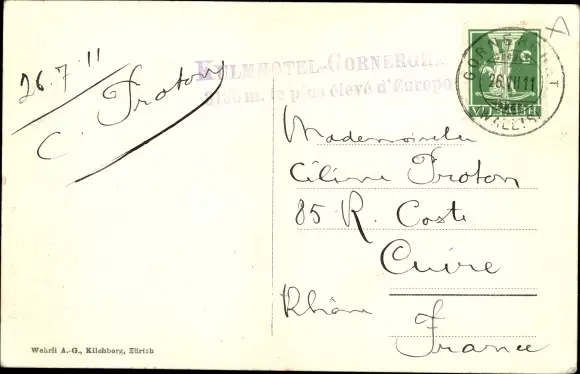 26.7.11
C. Froton
KULMHOTEL-GORNERGRAT
3136 m. le plus élevé d'Europe
GORNERGRAT
26.VII.11
(WALLIS)
HELVETIA
5
Mademoiselle
Céline Froton
85 R. Coste
Cuire
Rhône
France
Wehrli A.-G., Kilchberg, Zürich